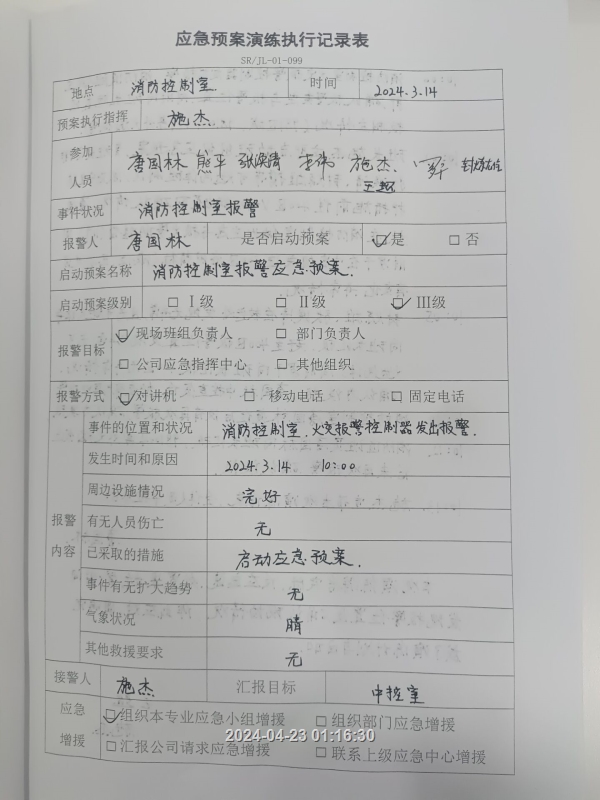 应急预案演练执行记录表
SR/JL-01-099
地点 消防控制室. 时间 2024.3.14
预案执行指挥 施杰.
参加人员 唐国林 熊平 李伟 施杰.
事件状况 消防控制室报警
报警人 唐国林 是否启动预案 ☑是 □否
启动预案名称 消防控制室报警应急预案.
启动预案级别 □ Ⅰ级 □ Ⅱ级 ☑ Ⅲ级
报警目标 ☑现场班组负责人 □ 部门负责人
□ 公司应急指挥中心 □ 其他组织
报警方式 ☑对讲机 □ 移动电话 □ 固定电话
报警内容
事件的位置和状况 消防控制室.火灾报警控制器发出报警.
发生时间和原因 2024.3.14 10:00
周边设施情况 完好
有无人员伤亡 无
已采取的措施 启动应急预案.
事件有无扩大趋势 无
气象状况 晴
其他救援要求 无
接警人 施杰 汇报目标 中控室
应急增援 ☑组织本专业应急小组增援 □组织部门应急增援
□汇报公司请求应急增援 □联系上级应急中心增援
2024-04-23 01:16:30